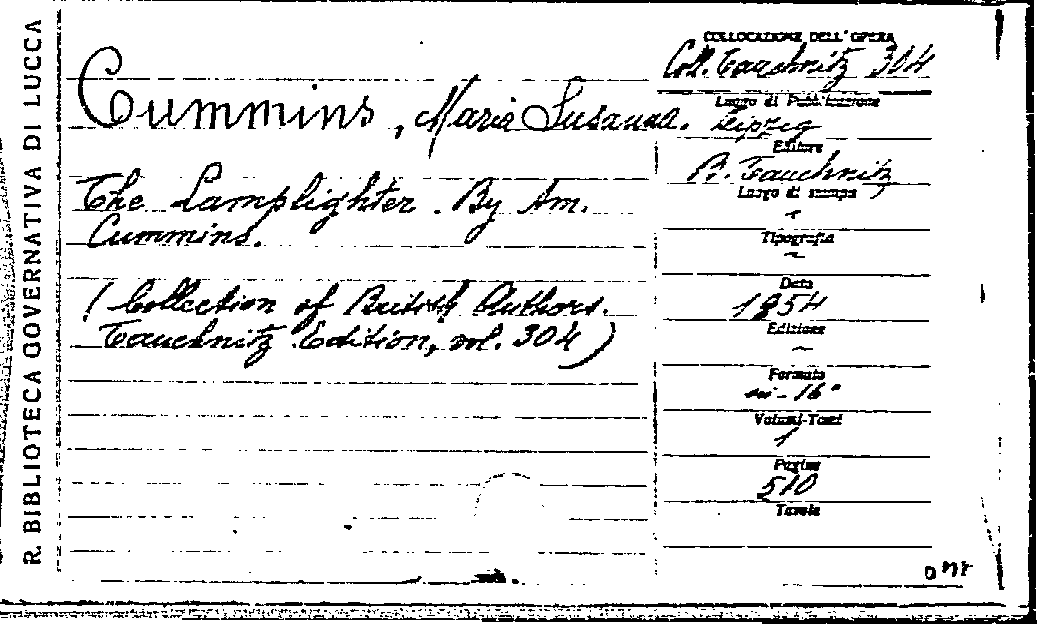 R. BIBLIOTECA GOVERNATIVA DI LUCCA
Cummins, Maria Susanna.
The Lamplighter. By Am.
Cummins.
( Collection of British Authors.
Tauchnitz Edition, vol. 304 )
COLLOCAZIONE DELL'OPERA
Coll. Tauchnitz 304
Luogo di Pubblicazione
Leipzig
Editore
B. Tauchnitz
Luogo di stampa
~
Tipografia
~
Data
1854
Edizione
~
Formato
in-16°
Volumi-Tomi
1
Pagine
510
Tavole